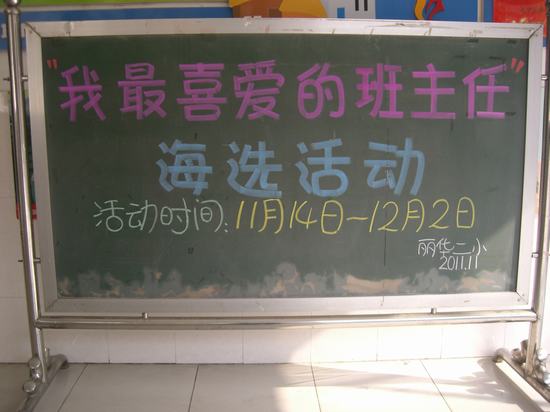 "我最喜爱的班主任"
海选活动
活动时间:11月14日-12月2日
丽华二小
2011.11